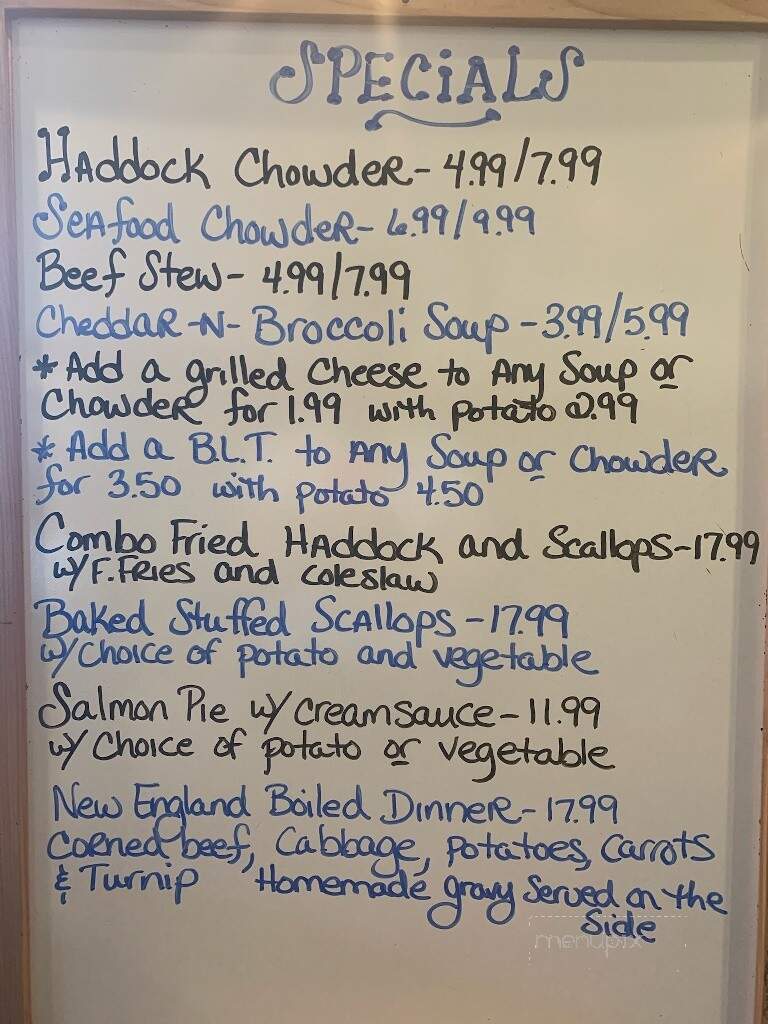 SPECiALS
HAddock ChowdeR - 4.99/7.99
SeAfood ChowdeR - 6.99/9.99
Beef Stew - 4.99/7.99
CheddaR -N- Broccoli Soup - 3.99/5.99
* Add a grilled Cheese to Any Soup or
ChowdeR for 1.99 with potato 2.99
* Add a B.L.T. to Any Soup or ChowdeR
for 3.50 with potato 4.50
Combo Fried HAddock and Scallops - 17.99
w/ F.FRies and coleslaw
Baked Stuffed ScAllops - 17.99
w/ Choice of potato and vegetable
Salmon Pie w/ creamsauce - 11.99
w/ Choice of potato or vegetable
New England Boiled DinneR - 17.99
CoRned beef, Cabbage, potatoes, carrots
& Turnip Homemade gravy Served on the
Side
menupix